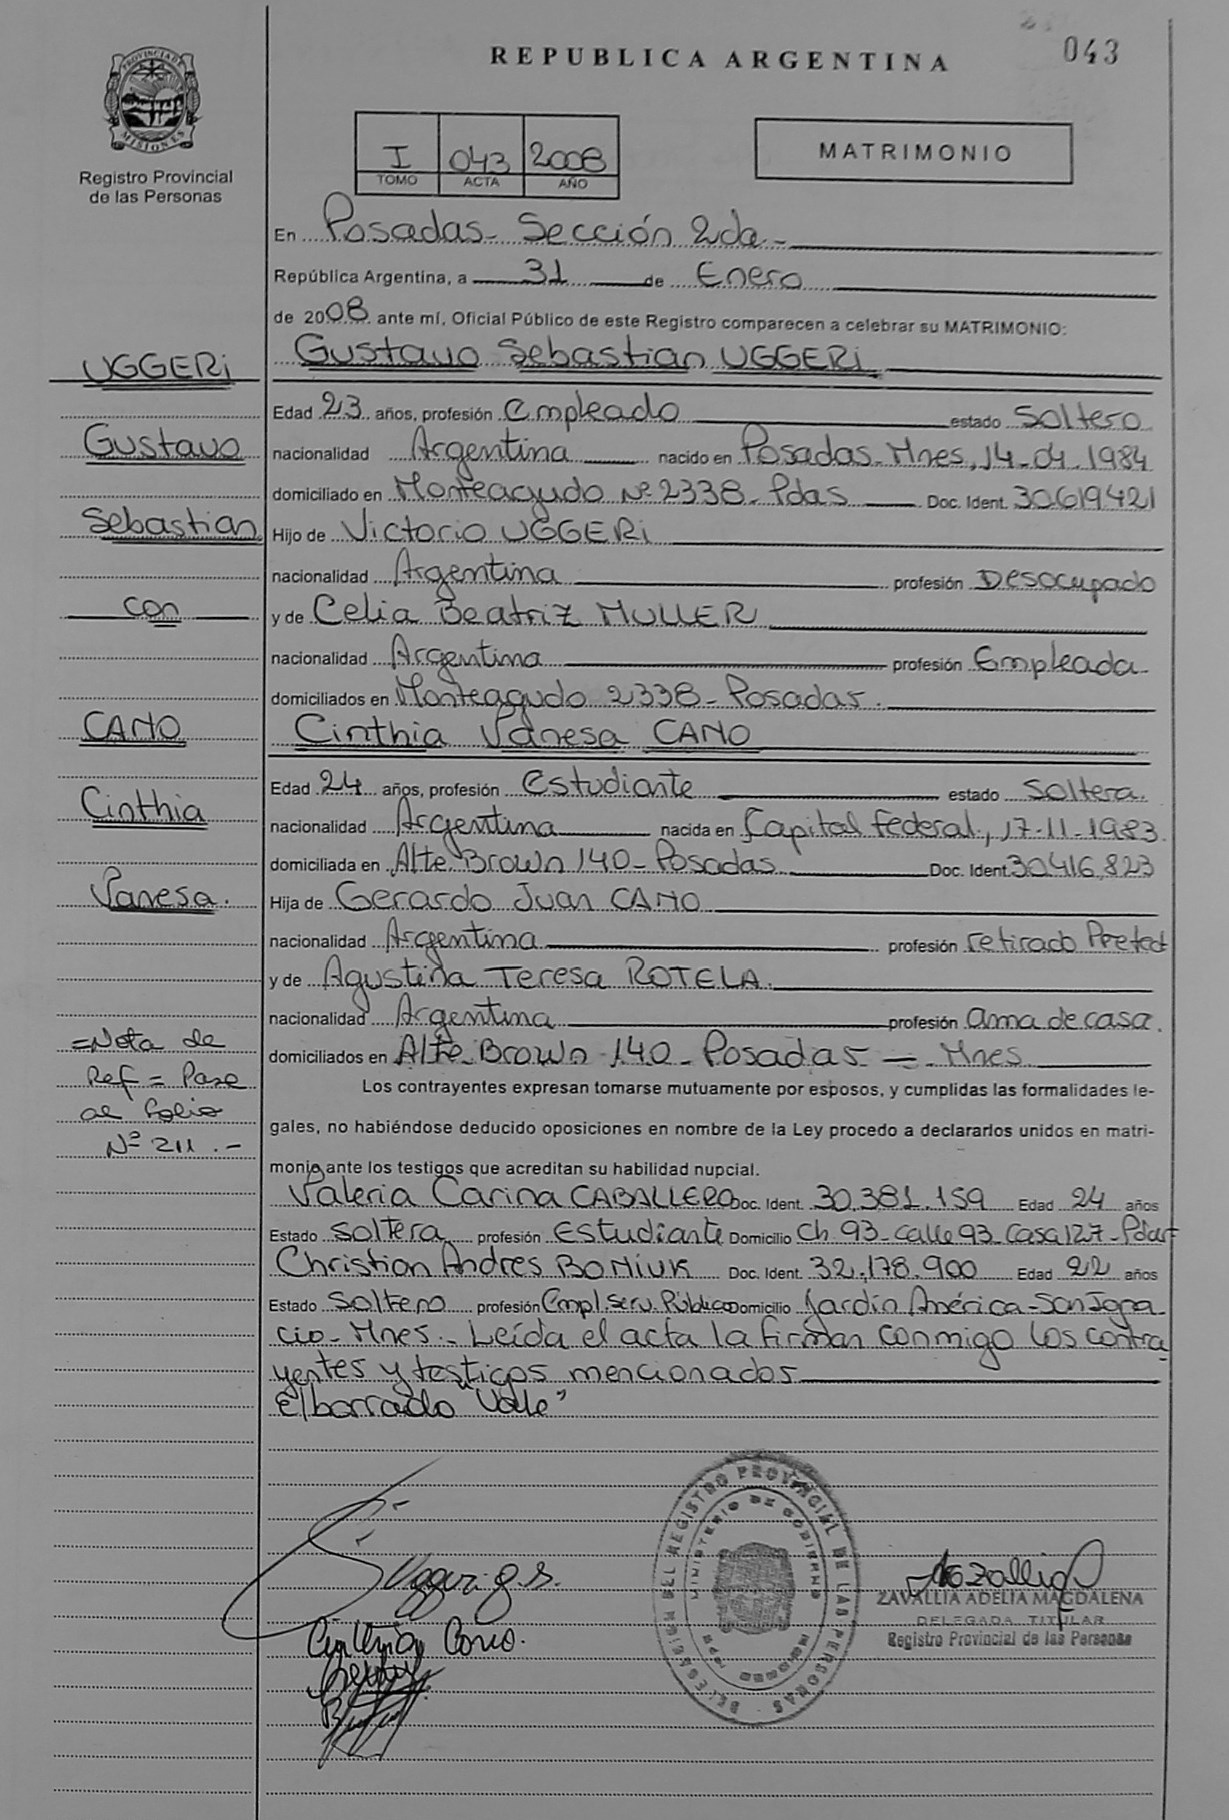 REPUBLICA ARGENTINA
043
PROVINCIA DE MISIONES
Registro Provincial
de las Personas
I 043 2008
TOMO ACTA AÑO
MATRIMONIO
En Posadas- Sección 2da.-
República Argentina, a 31 de Enero
de 2008 ante mí, Oficial Público de este Registro comparecen a celebrar su MATRIMONIO:
Gustavo Sebastian UGGERi
Edad 23 años, profesión Empleado estado Soltero
nacionalidad Argentina nacido en Posadas-Mnes, 14-04-1984
domiciliado en Monteagudo Nº 2338-Pdas Doc. Ident. 30.619.421
Hijo de Victorio UGGERi
nacionalidad Argentina profesión Desocupado
y de Celia Beatriz MULLER
nacionalidad Argentina profesión Empleada
domiciliados en Monteagudo 2338-Posadas.
Cinthia Vanesa CANO
Edad 24 años, profesión Estudiante estado Soltera.
nacionalidad Argentina nacida en Capital federal., 17-11-1983
domiciliada en Alte. Brown 140-Posadas Doc. Ident 30.416.823
Hija de Gerardo Juan CANO
nacionalidad Argentina profesión retirado Prefect
y de Agustina Teresa ROTELA.
nacionalidad Argentina profesión ama de casa.
domiciliados en Alte. Brown 140-Posadas - Mnes
Los contrayentes expresan tomarse mutuamente por esposos, y cumplidas las formalidades le-
gales, no habiéndose deducido oposiciones en nombre de la Ley procedo a declararlos unidos en matri-
monio ante los testigos que acreditan su habilidad nupcial.
Valeria Carina CABALLERO Doc. Ident. 30.381.159 Edad 24 años
Estado Soltera profesión Estudiante Domicilio Ch 93-calle 93-Casa 127-Pdas
Christian Andres BONIUK Doc. Ident. 32.178.900 Edad 22 años
Estado Soltero profesión Empl. Serv. Público Domicilio Jardín América-San Igna-
cio-Mnes.- Leída el acta la firman conmigo los contra-
yentes y testigos mencionados
E/borrado "Valle"
UGGERi
Gustavo
Sebastian
con
CANO
Cinthia
Vanesa.
=Nota de
Ref= Pase
al Folio
Nº 211.-
Uggeri g.s.
Cinthia Cano.
DELEGACION DEL REGISTRO PROVINCIAL DE LAS PERSONAS
MINISTERIO DE GOBIERNO
ZAVALLIA ADELIA MAGDALENA
DELEGADA TITULAR
Registro Provincial de las Personas